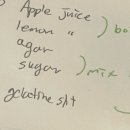 Apple juice
lemon "
agar
sugar
bo
mix
gelatine s